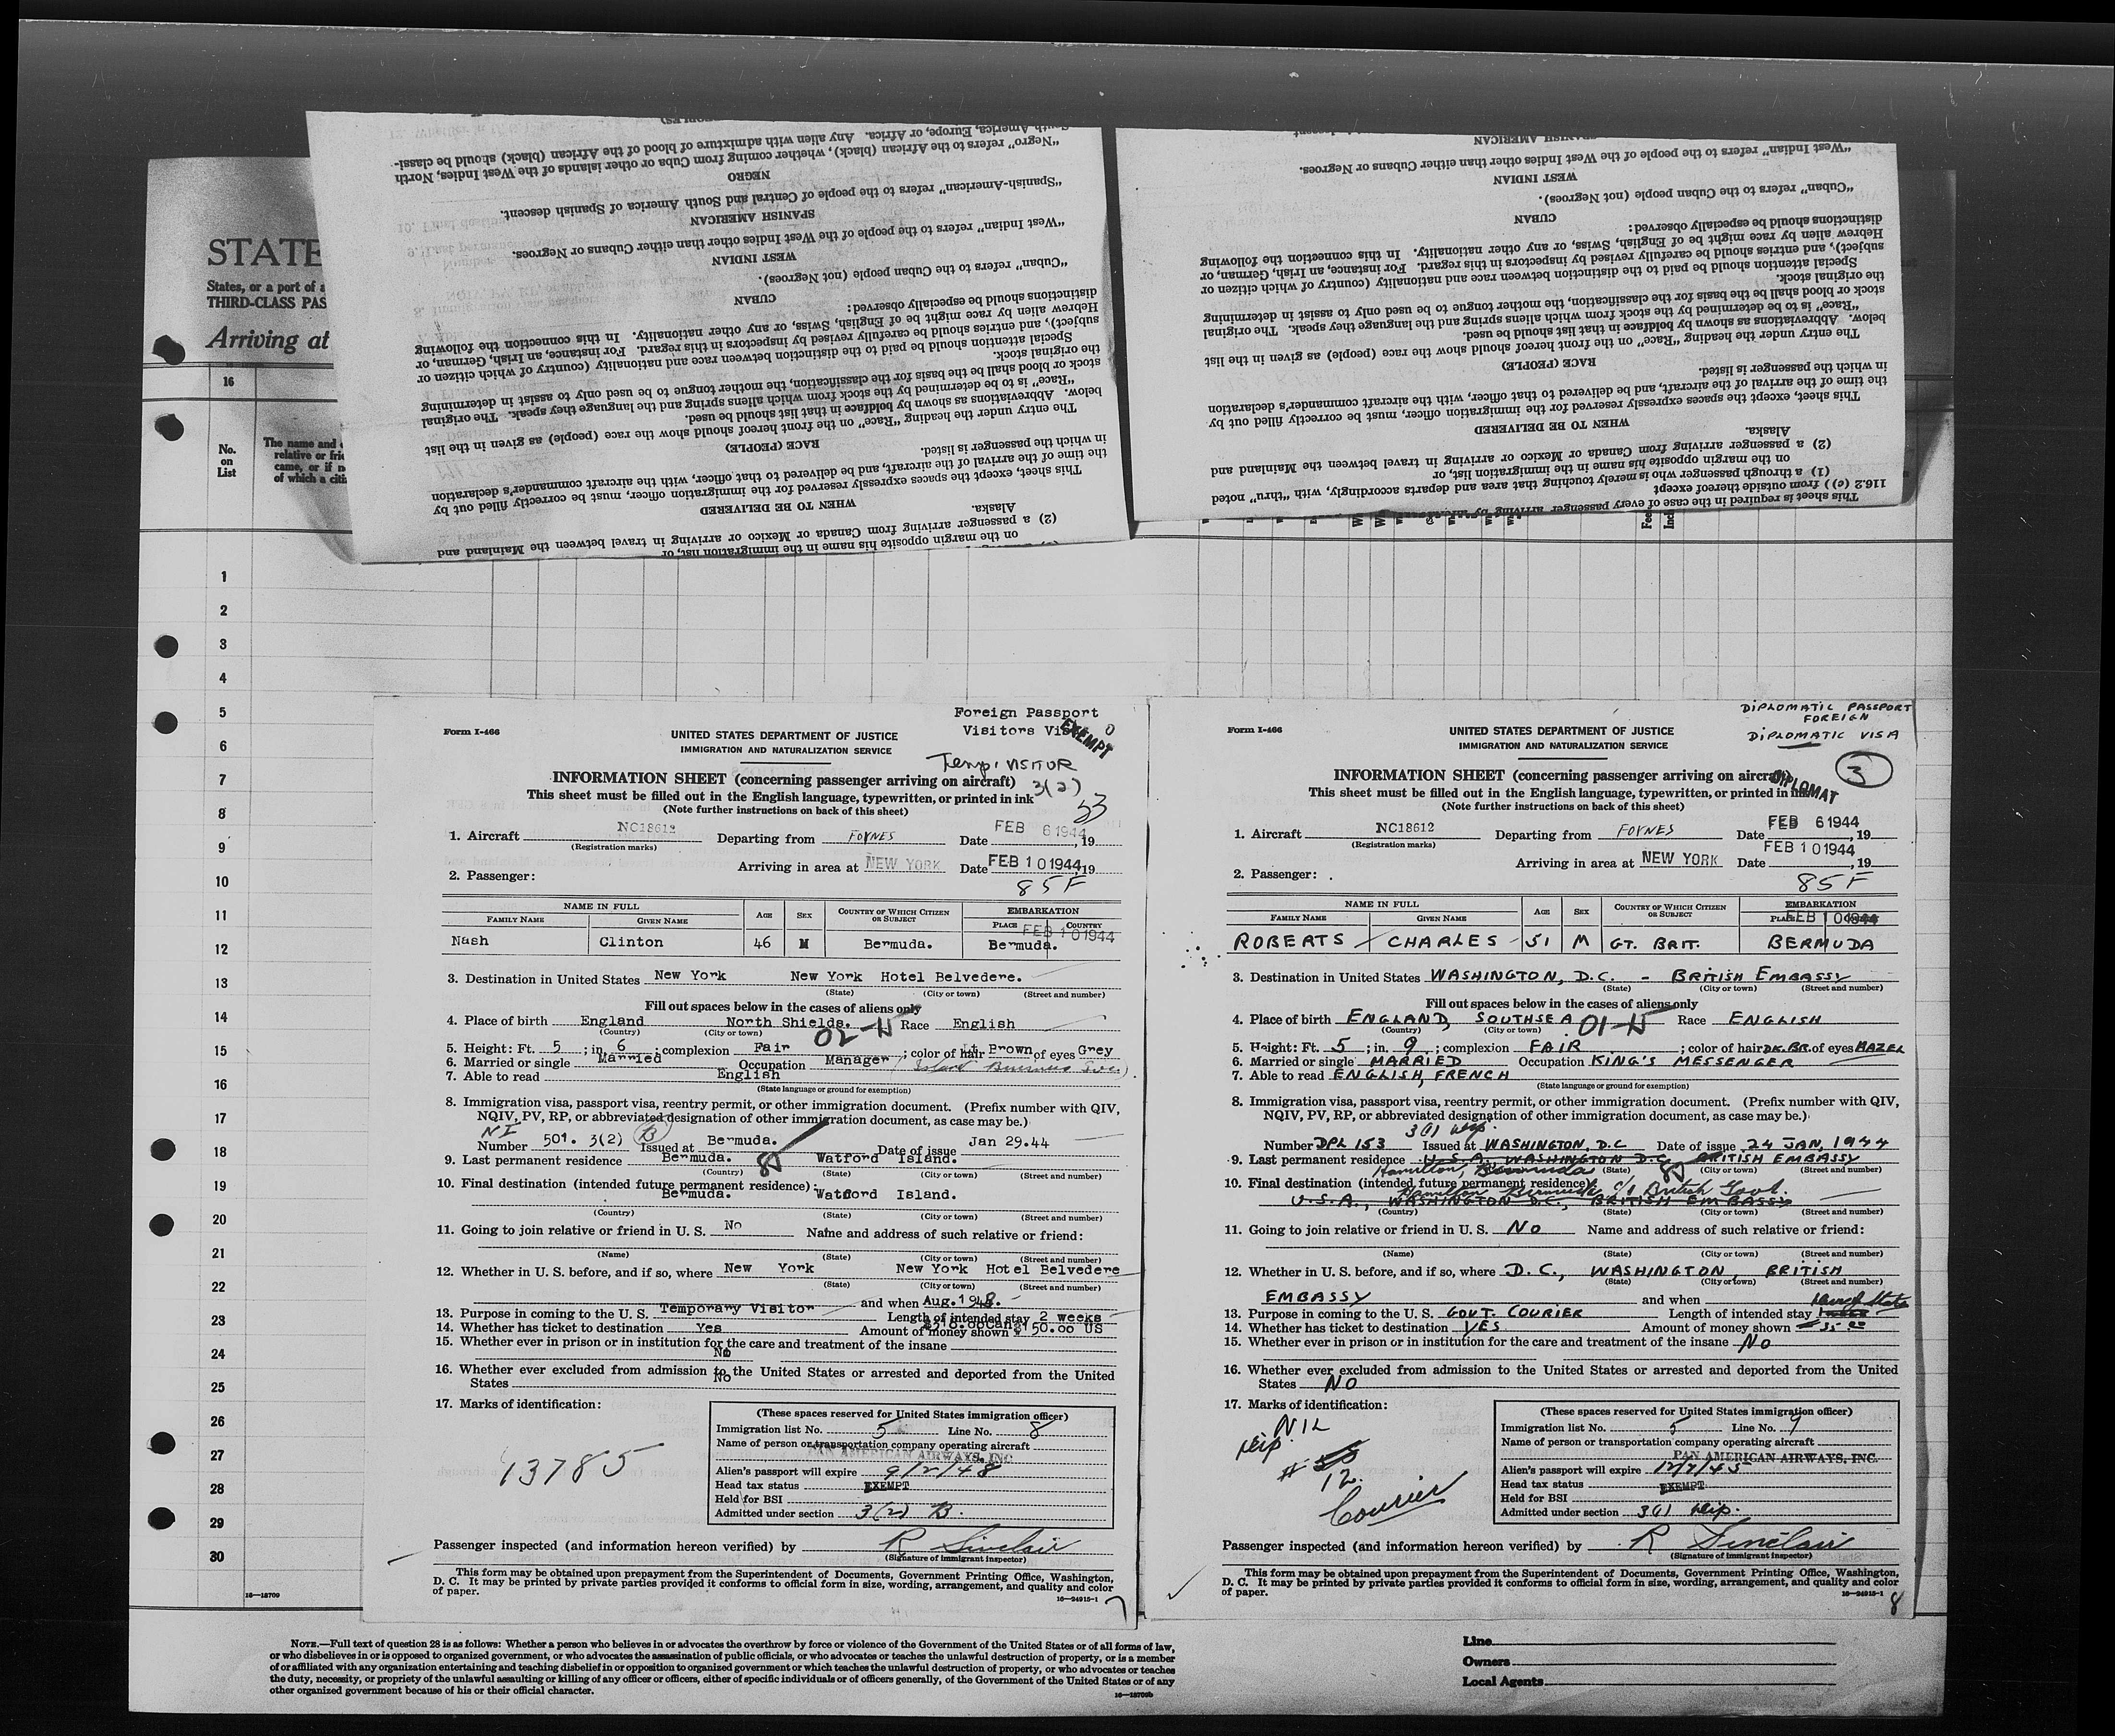 STATE
States, or a port of a
THIRD-CLASS PAS
Arriving at
16
No.
on
List
The name and
relative or frie
came, or if n
of which a citi
on the margin opposite his name in the immigration list, or
(2) a passenger arriving from Canada or Mexico or arriving in travel between the Mainland and
Alaska.
WHEN TO BE DELIVERED
This sheet, except the spaces expressly reserved for the immigration officer, must be correctly filled out by
the time of the arrival of the aircraft, and be delivered to that officer, with the aircraft commander's declaration
in which the passenger is listed.
RACE (PEOPLE)
The entry under the heading "Race" on the front hereof should show the race (people) as given in the list
below. Abbreviations as shown by boldface in that list should be used.
"Race" is to be determined by the stock from which aliens spring and the language they speak. The original
stock or blood shall be the basis for the classification, the mother tongue to be used only to assist in determining
the original stock.
Special attention should be paid to the distinction between race and nationality (country of which citizen or
subject), and entries should be carefully revised by inspectors in this regard. For instance, an Irish, German, or
Hebrew alien by race might be of English, Swiss, or any other nationality. In this connection the following
distinctions should be especially observed:
CUBAN
"Cuban" refers to the Cuban people (not Negroes).
WEST INDIAN
"West Indian" refers to the people of the West Indies other than either Cubans or Negroes.
SPANISH AMERICAN
"Spanish-American" refers to the people of Central and South America of Spanish descent.
NEGRO
"Negro" refers to the African (black), whether coming from Cuba or other islands of the West Indies, North
South America, Europe, or Africa. Any alien with admixture of blood of the African (black) should be classi-
This sheet is required in the case of every passenger arriving by
116.2 (e)) from outside thereof except
(1) a through passenger who is merely touching that area and departs accordingly, with "thru" noted
on the margin opposite his name in the immigration list, or
(2) a passenger arriving from Canada or Mexico or arriving in travel between the Mainland and
Alaska.
WHEN TO BE DELIVERED
This sheet, except the spaces expressly reserved for the immigration officer, must be correctly filled out by
the time of the arrival of the aircraft, and be delivered to that officer, with the aircraft commander's declaration
in which the passenger is listed.
RACE (PEOPLE)
The entry under the heading "Race" on the front hereof should show the race (people) as given in the list
below. Abbreviations as shown by boldface in that list should be used.
"Race" is to be determined by the stock from which aliens spring and the language they speak. The original
stock or blood shall be the basis for the classification, the mother tongue to be used only to assist in determining
the original stock.
Special attention should be paid to the distinction between race and nationality (country of which citizen or
subject), and entries should be carefully revised by inspectors in this regard. For instance, an Irish, German, or
Hebrew alien by race might be of English, Swiss, or any other nationality. In this connection the following
distinctions should be especially observed:
CUBAN
"Cuban" refers to the Cuban people (not Negroes).
WEST INDIAN
"West Indian" refers to the people of the West Indies other than either Cubans or Negroes.
SPANISH AMERICAN
1
2
3
4
5
6
7
8
9
10
11
12
13
14
15
16
17
18
19
20
21
22
23
24
25
26
27
28
29
30
16—18709
Foreign Passport
Visitors Vis
EXEMPT
Form I-466
UNITED STATES DEPARTMENT OF JUSTICE
IMMIGRATION AND NATURALIZATION SERVICE
Temp. VISITOR
3(2)
INFORMATION SHEET (concerning passenger arriving on aircraft)
This sheet must be filled out in the English language, typewritten, or printed in ink
53
(Note further instructions on back of this sheet)
1. Aircraft NC18612 Departing from FOYNES Date FEB 6 1944, 19
(Registration marks)
Arriving in area at NEW YORK Date FEB 10 1944, 19
2. Passenger: 85F
NAME IN FULL AGE SEX COUNTRY OF WHICH CITIZEN OR SUBJECT EMBARKATION
FAMILY NAME GIVEN NAME PLACE COUNTRY
FEB 10 1944
Nash Clinton 46 M Bermuda. Bermuda.
3. Destination in United States New York New York Hotel Belvedere.
(State) (City or town) (Street and number)
Fill out spaces below in the cases of aliens only
4. Place of birth England North Shields. 02-N Race English
(Country) (City or town)
5. Height: Ft. 5; in. 6; complexion Fair; color of hair Lt Brown, of eyes Grey
6. Married or single Married Occupation Manager
7. Able to read English
(State language or ground for exemption)
8. Immigration visa, passport visa, reentry permit, or other immigration document. (Prefix number with QIV,
NQIV, PV, RP, or abbreviated designation of other immigration document, as case may be.)
NI
Number 501. 3(2) B Issued at Bermuda. Date of issue Jan 29.44
9. Last permanent residence Bermuda. Watford Island.
(Country) (State) (City or town) (Street and number)
10. Final destination (intended future permanent residence):
Bermuda. Watford Island.
(Country) (State) (City or town) (Street and number)
11. Going to join relative or friend in U. S. No Name and address of such relative or friend:
(Name) (State) (City or town) (Street and number)
12. Whether in U. S. before, and if so, where New York New York Hotel Belvedere
(State) (City or town) (Street and number)
and when
13. Purpose in coming to the U. S. Temporary Visitor Length of intended stay 2 weeks
14. Whether has ticket to destination Yes Amount of money shown $150.00 US
15. Whether ever in prison or in institution for the care and treatment of the insane
No
16. Whether ever excluded from admission to the United States or arrested and deported from the United
States No
17. Marks of identification:
13785
(These spaces reserved for United States immigration officer)
Immigration list No. 5 Line No. 8
Name of person or transportation company operating aircraft
PAN AMERICAN AIRWAYS, INC
Alien's passport will expire 9/2/48
Head tax status EXEMPT
Held for BSI
Admitted under section 3(2) B.
Passenger inspected (and information hereon verified) by R Sinclair
(Signature of immigrant inspector)
This form may be obtained upon prepayment from the Superintendent of Documents, Government Printing Office, Washington,
D. C. It may be printed by private parties provided it conforms to official form in size, wording, arrangement, and quality and color
of paper.
16—24915-1
7
DIPLOMATIC PASSPORT
FOREIGN
DIPLOMATIC VISA
Form I-466
UNITED STATES DEPARTMENT OF JUSTICE
IMMIGRATION AND NATURALIZATION SERVICE
3
INFORMATION SHEET (concerning passenger arriving on aircraft)
DIPLOMAT
This sheet must be filled out in the English language, typewritten, or printed in ink
(Note further instructions on back of this sheet)
1. Aircraft NC18612 Departing from FOYNES Date FEB 6 1944, 19
(Registration marks)
Arriving in area at NEW YORK Date FEB 10 1944, 19
2. Passenger: 85F
NAME IN FULL AGE SEX COUNTRY OF WHICH CITIZEN OR SUBJECT EMBARKATION
FAMILY NAME GIVEN NAME PLACE
FEB 10 1944
ROBERTS CHARLES 51 M GT. BRIT. BERMUDA
3. Destination in United States WASHINGTON, D.C. - BRITISH EMBASSY
(State) (City or town) (Street and number)
Fill out spaces below in the cases of aliens only
4. Place of birth ENGLAND, SOUTHSEA 01-N Race ENGLISH
(Country) (City or town)
5. Height: Ft. 5; in. 9; complexion FAIR; color of hair DK. BR. of eyes HAZEL
6. Married or single MARRIED Occupation KING'S MESSENGER
7. Able to read ENGLISH, FRENCH
(State language or ground for exemption)
8. Immigration visa, passport visa, reentry permit, or other immigration document. (Prefix number with QIV,
NQIV, PV, RP, or abbreviated designation of other immigration document, as case may be.)
3(1) dip.
Number DPL 153 Issued at WASHINGTON, D.C Date of issue 24 JAN, 1944
9. Last permanent residence U.S.A. WASHINGTON D.C. BRITISH EMBASSY
Hamilton, Bermuda (State) (City or town) (Street and number)
10. Final destination (intended future permanent residence)
Hamilton Bermuda c/o British Govt.
U.S.A., WASHINGTON D.C., BRITISH EMBASSY
(Country) (State) (City or town) (Street and number)
11. Going to join relative or friend in U. S. NO Name and address of such relative or friend:
(Name) (State) (City or town) (Street and number)
12. Whether in U. S. before, and if so, where D.C., WASHINGTON, BRITISH
(State) (City or town) (Street and number)
EMBASSY and when
13. Purpose in coming to the U. S. GOVT. COURIER Length of intended stay
14. Whether has ticket to destination YES Amount of money shown
15. Whether ever in prison or in institution for the care and treatment of the insane NO
16. Whether ever excluded from admission to the United States or arrested and deported from the United
States NO
17. Marks of identification:
NIL
dip.
12.
Courier
(These spaces reserved for United States immigration officer)
Immigration list No. 5 Line No. 9
Name of person or transportation company operating aircraft
PAN AMERICAN AIRWAYS, INC.
Alien's passport will expire 12/2/45
Head tax status EXEMPT
Held for BSI
Admitted under section 3(1) dip.
Passenger inspected (and information hereon verified) by R Sinclair
(Signature of immigrant inspector)
This form may be obtained upon prepayment from the Superintendent of Documents, Government Printing Office, Washington,
D. C. It may be printed by private parties provided it conforms to official form in size, wording, arrangement, and quality and color
of paper.
16—24915-1
8
NOTE.—Full text of question 28 is as follows: Whether a person who believes in or advocates the overthrow by force or violence of the Government of the United States or of all forms of law,
or who disbelieves in or is opposed to organized government, or who advocates the assassination of public officials, or who advocates or teaches the unlawful destruction of property, or is a member
of or affiliated with any organization entertaining and teaching disbelief in or opposition to organized government or which teaches the unlawful destruction of property, or who advocates or teaches
the duty, necessity, or propriety of the unlawful assaulting or killing of any officer or officers, either of specific individuals or of officers generally, of the Government of the United States or of any
other organized government because of his or their official character.
16—18709b
Line
Owners
Local Agents